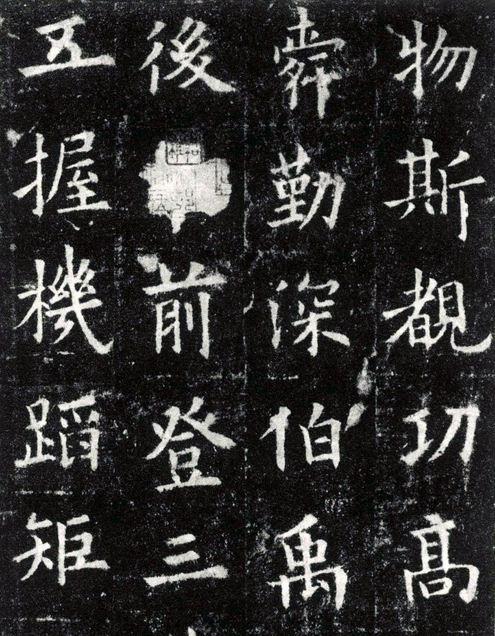 物斯覩功高
舜勤深伯禹
後前登三
五握機蹈矩